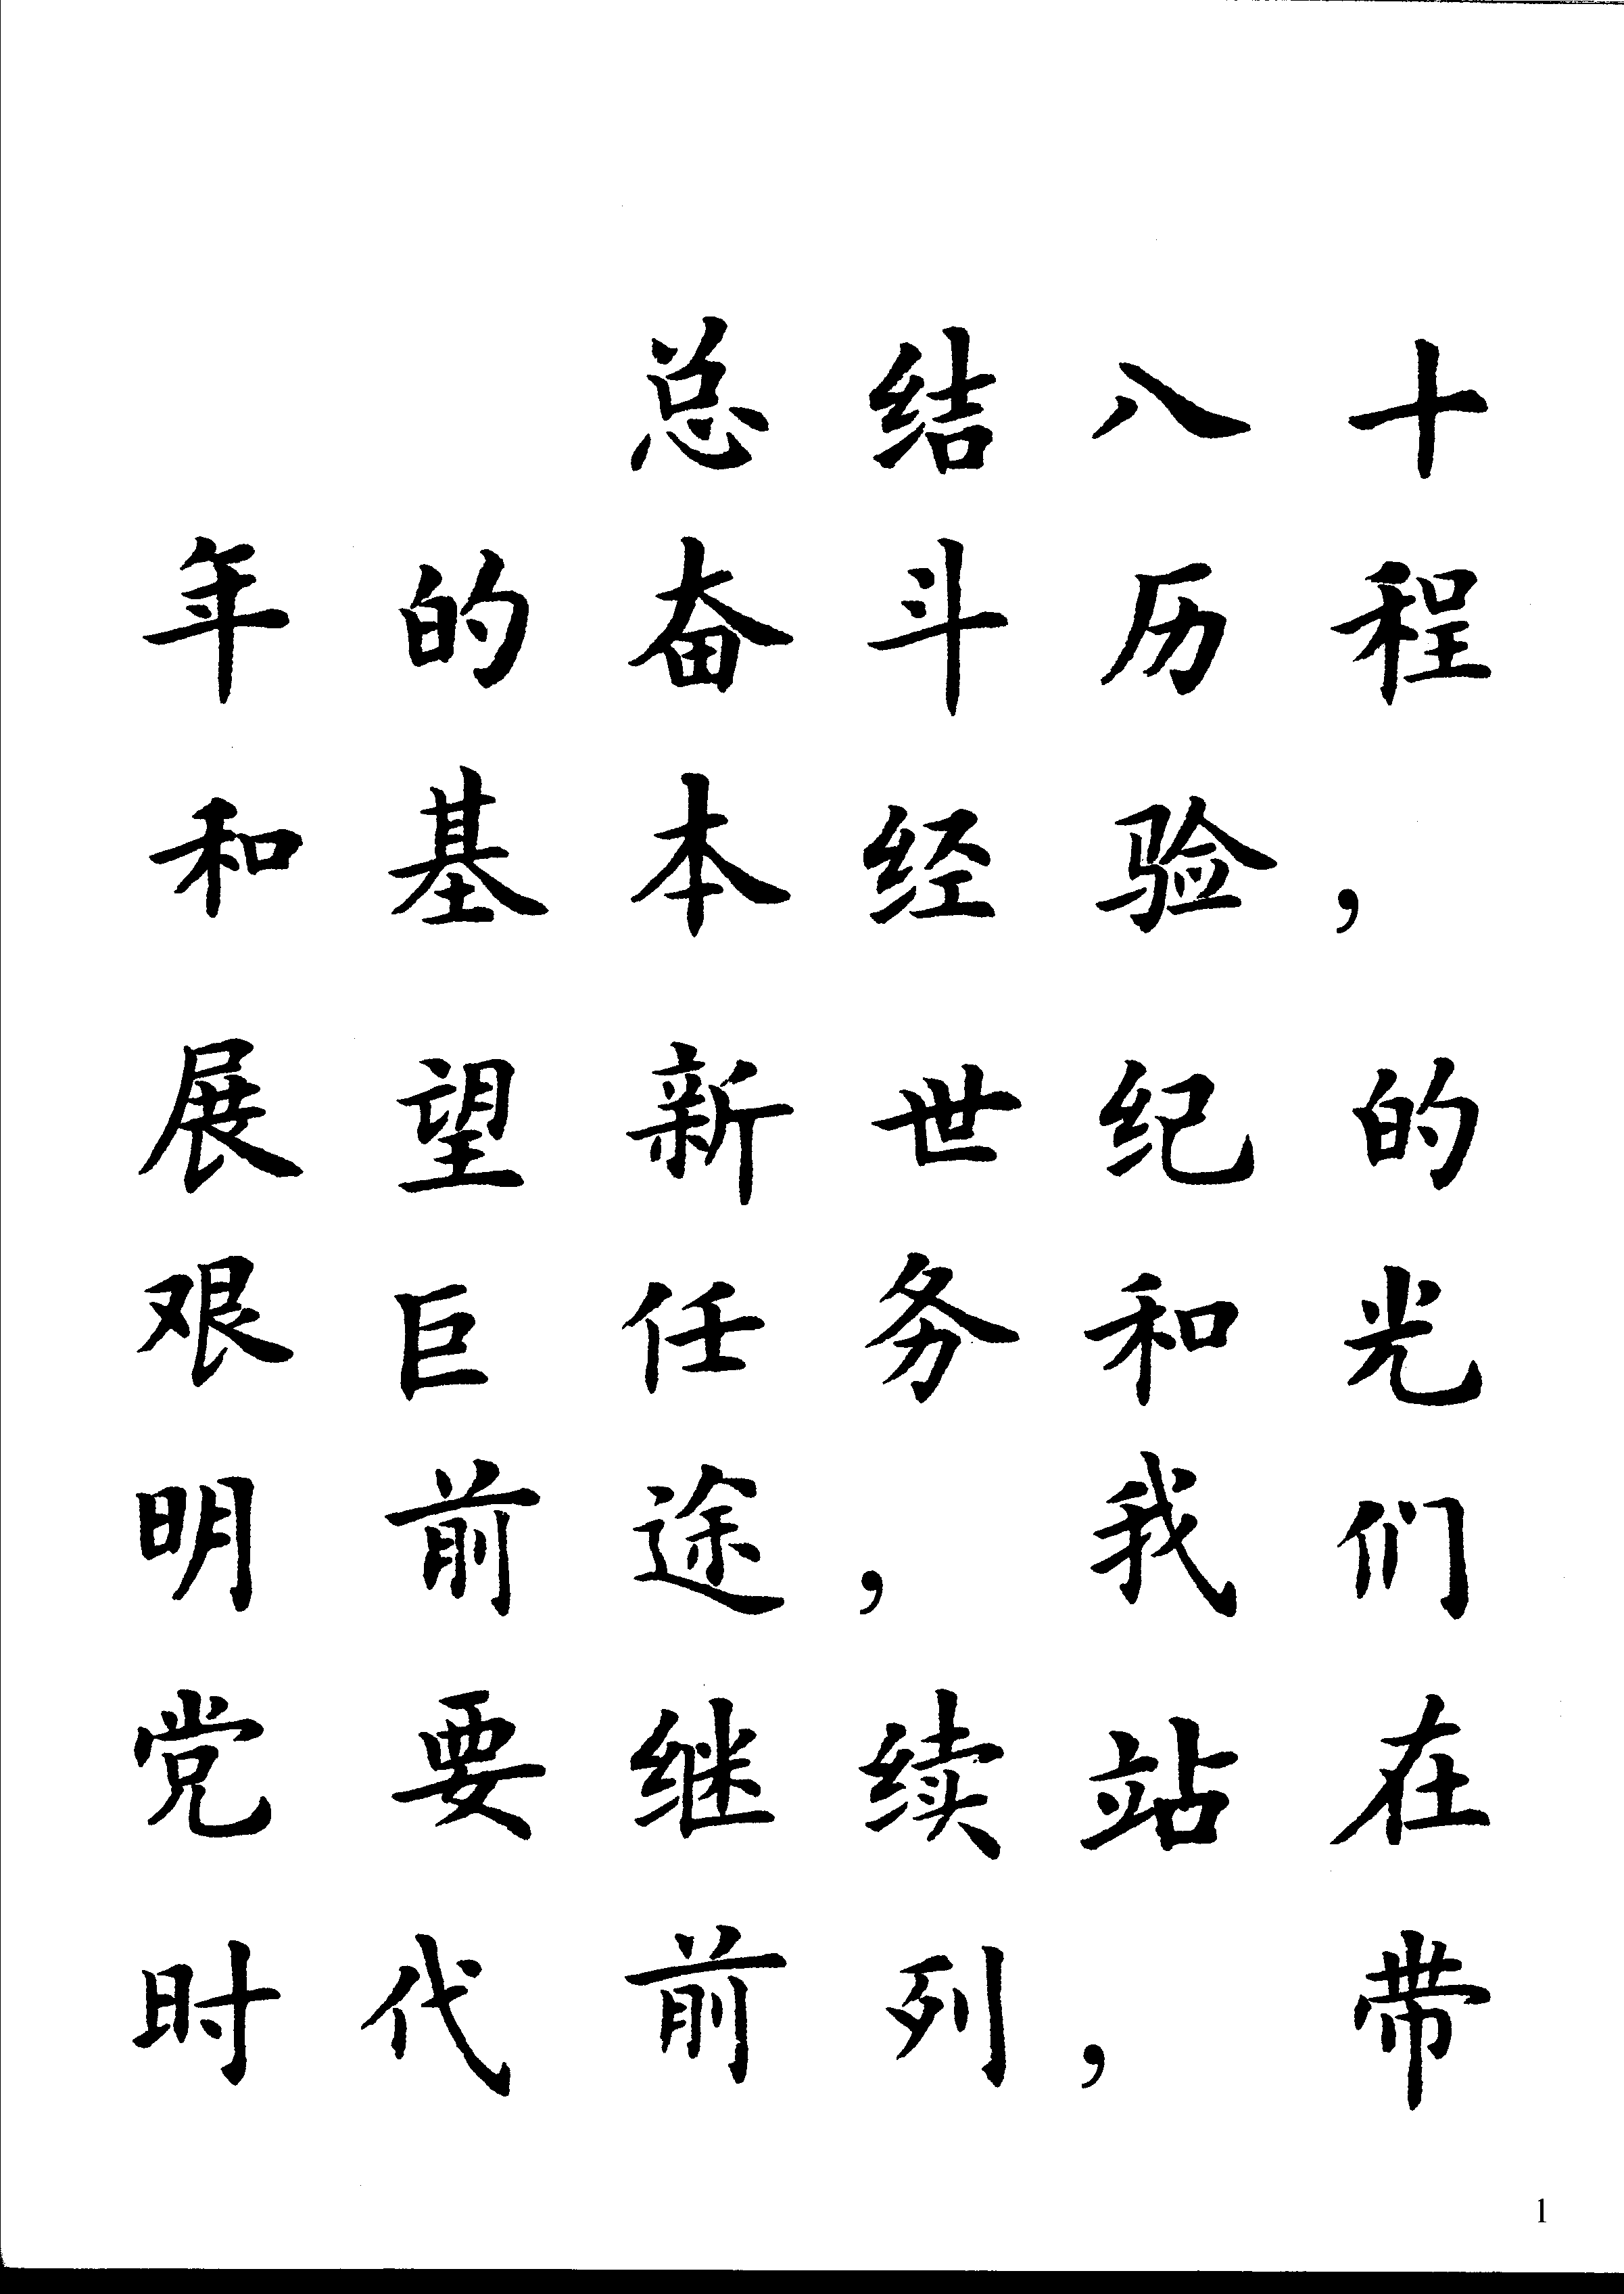 总结八十
年的奋斗历程
和基本经验，
展望新世纪的
艰巨任务和光
明前途，我们
党要继续站在
时代前列，带
1